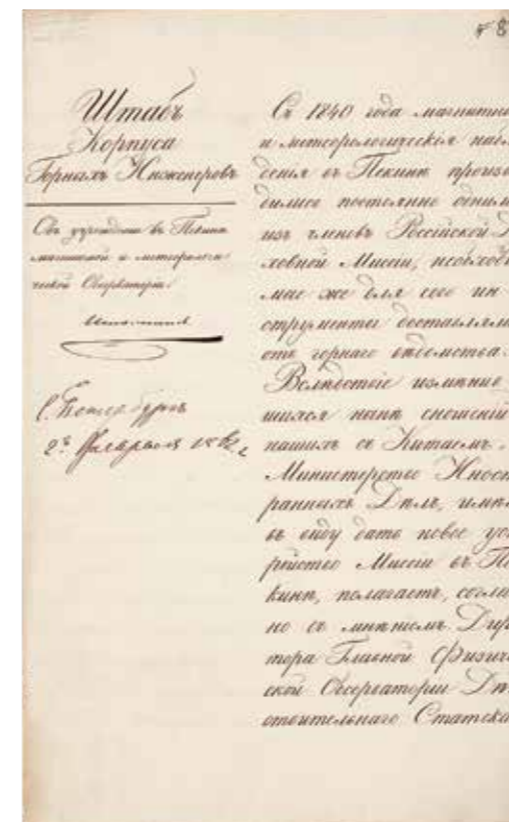 8
Штабъ
Корпуса
Горныхъ Инженеровъ
Объ учрежденіи въ Пекинѣ
магнитной и метеорологи-
ческой Обсерваторіи.
С. Петербургъ
Февраля
Съ 1840 года магнитны
и метеорологическія наблю
денія въ Пекинѣ произво
дились постоянно однимъ
изъ членовъ Россійской Ду
ховной Миссіи, необходи
мые же для сего ин
струменты доставлялис
отъ горнаго вѣдомства.
Вслѣдствіе измѣнив
шихся нынѣ сношеній
нашихъ съ Китаемъ
Министерство Иност
ранныхъ Дѣлъ, имѣя
въ виду дать новое уст
ройство Миссіи въ Пе
кинѣ, полагаетъ, соглас
но съ мнѣніемъ Дирек
тора Главной Физиче
ской Обсерваторіи Дѣй
ствительнаго Статскаг